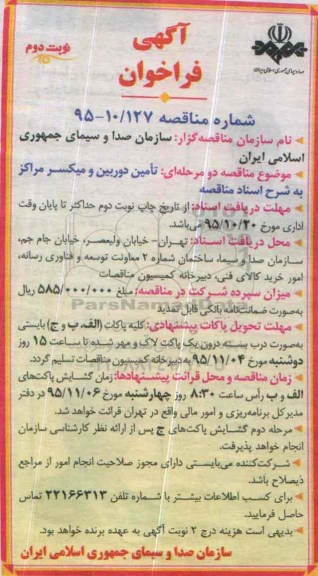 آگهی
فراخوان
نوبت دوم
صدا و سیمای جمهوری اسلامی ایران
شماره مناقصه ۹۵-۱۰/۱۲۷
نام سازمان مناقصه‌گزار: سازمان صدا و سیمای جمهوری
اسلامی ایران
موضوع مناقصه دو مرحله‌ای: تأمین دوربین و میکسر مراکز
به شرح اسناد مناقصه
مهلت دریافت اسناد: از تاریخ چاپ نوبت دوم حداکثر تا پایان وقت
اداری مورخ ۹۵/۱۰/۲۰ می‌باشد.
محل دریافت اسناد: تهران- خیابان ولیعصر، خیابان جام جم،
سازمان صدا و سیما، ساختمان شماره ۲ معاونت توسعه و فناوری رسانه،
امور خرید کالای فنی، دبیرخانه کمیسیون مناقصات
میزان سپرده شرکت در مناقصه: مبلغ ۵۸۵/۰۰۰/۰۰۰ ریال
به‌صورت ضمانت‌نامه بانکی قابل تمدید
ParsNamadData
مهلت تحویل پاکات پیشنهادی: کلیه پاکات (الف، ب و ج) بایستی
به‌صورت درب بسته درون یک پاکت لاک و مهر شده تا ساعت ۱۵ روز
دوشنبه مورخ ۹۵/۱۱/۰۴ به دبیرخانه کمیسیون مناقصات تسلیم گردد.
زمان مناقصه و محل قرائت پیشنهادها: زمان گشایش پاکت‌های
الف و ب رأس ساعت ۸:۳۰ روز چهارشنبه مورخ ۹۵/۱۱/۰۶ در دفتر
مدیرکل برنامه‌ریزی و امور مالی واقع در تهران قرائت خواهد شد.
مرحله دوم گشایش پاکت‌های ج پس از ارائه نظر کارشناسی سازمان
انجام خواهد پذیرفت.
شرکت‌کننده می‌بایستی دارای مجوز صلاحیت انجام امور از مراجع
ذیصلاح باشد.
برای کسب اطلاعات بیشتر با شماره تلفن ۲۲۱۶۶۳۱۳ تماس
حاصل فرمایید.
بدیهی است هزینه درج ۲ نوبت آگهی به عهده برنده خواهد بود.
سازمان صدا و سیمای جمهوری اسلامی ایران